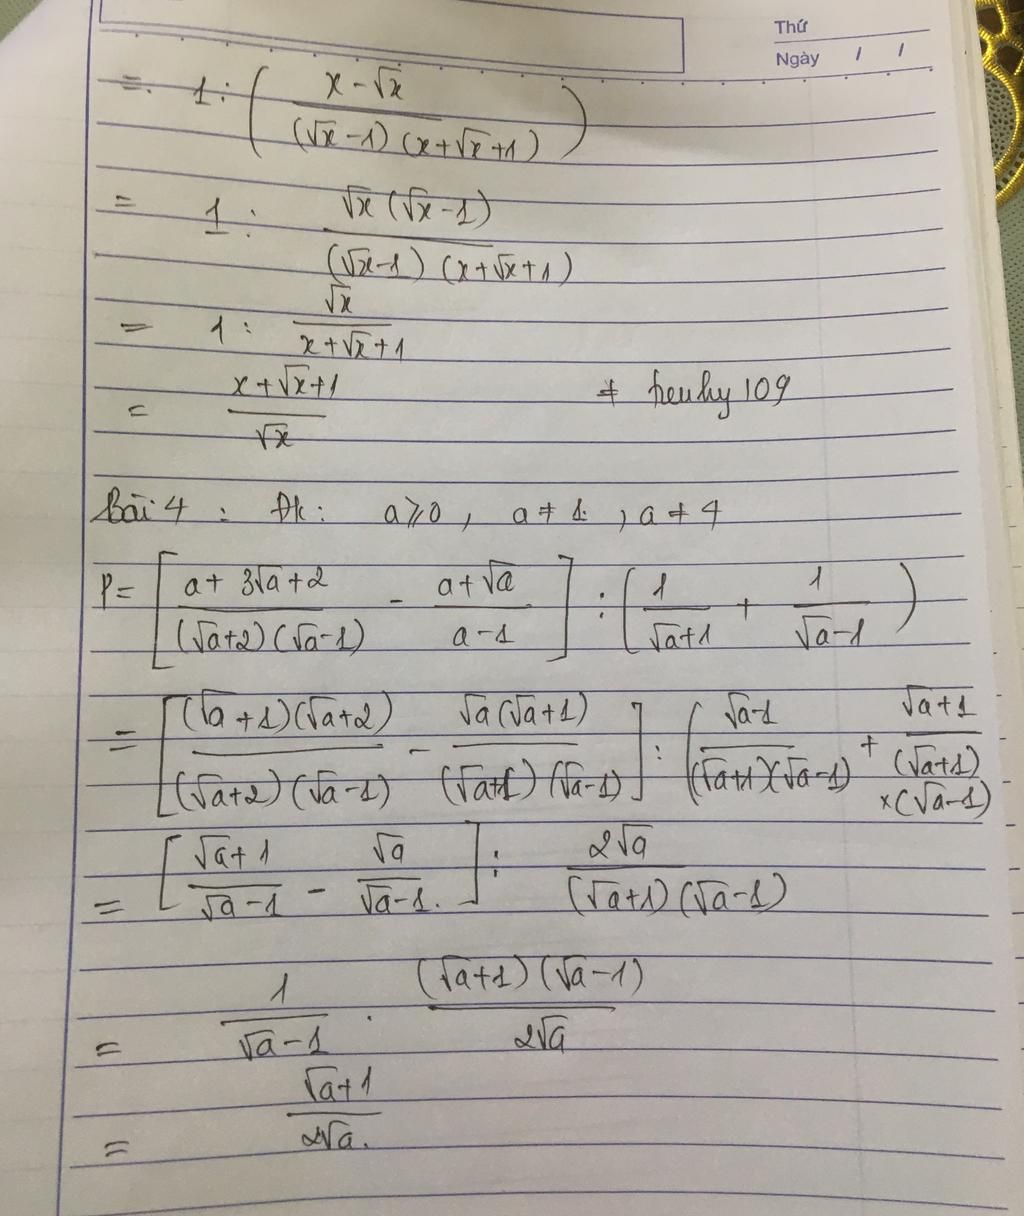 Thứ
Ngày / /
= 1 : ( (x - √x) / ((√x - 1)(x + √x + 1)) )
= 1 : (√x (√x - 1)) / ((√x - 1)(x + √x + 1))
= 1 : √x / (x + √x + 1)
= (x + √x + 1) / √x
* heuhy 109
Bài 4 : Đk : a ≥ 0 , a ≠ 1 , a ≠ 4
P = [ (a + 3√a + 2) / ((√a + 2)(√a - 1)) - (a + √a) / (a - 1) ] : ( 1 / (√a + 1) + 1 / (√a - 1) )
= [ ((√a + 1)(√a + 2)) / ((√a + 2)(√a - 1)) - (√a(√a + 1)) / ((√a + 1)(√a - 1)) ] : ( (√a - 1) / ((√a + 1)(√a - 1)) + (√a + 1) / ((√a + 1) × (√a - 1))
= [ (√a + 1) / (√a - 1) - √a / (√a - 1) ] : 2√a / ((√a + 1)(√a - 1))
= 1 / (√a - 1) . ((√a + 1)(√a - 1)) / 2√a
= (√a + 1) / 2√a .